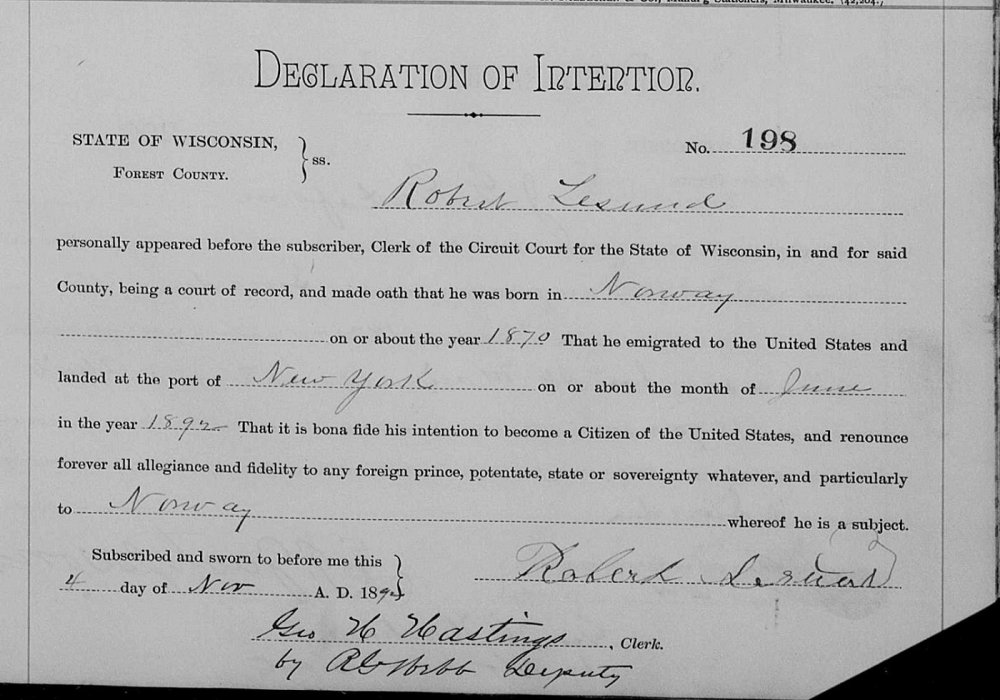 Manufg Stationers, Milwaukee.
DECLARATION OF INTENTION.
STATE OF WISCONSIN, } ss.
FOREST COUNTY.
No. 198
Robert Lesund
personally appeared before the subscriber, Clerk of the Circuit Court for the State of Wisconsin, in and for said
County, being a court of record, and made oath that he was born in Norway
on or about the year 1870 That he emigrated to the United States and
landed at the port of New York on or about the month of June
in the year 1892 That it is bona fide his intention to become a Citizen of the United States, and renounce
forever all allegiance and fidelity to any foreign prince, potentate, state or sovereignty whatever, and particularly
to Norway whereof he is a subject.
Subscribed and sworn to before me this
4 day of Nov A. D. 189
Robert
Geo H Hastings, Clerk.
by Deputy